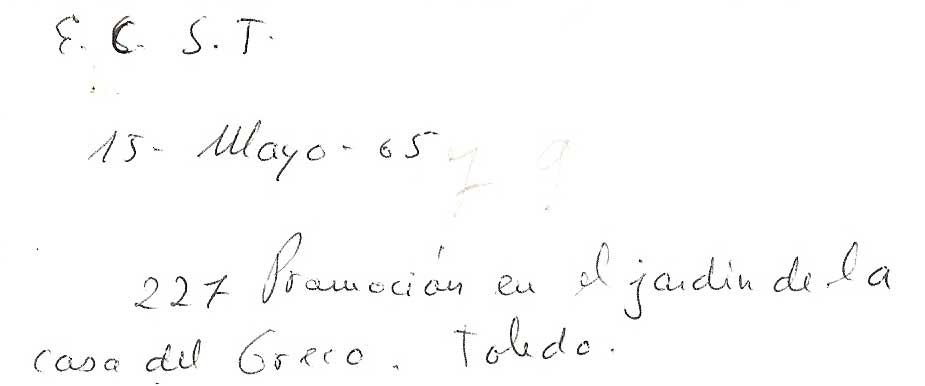 E. C. S. T.
15- Mayo- 65
227 Promoción en el jardin de la
casa del Greco. Toledo.